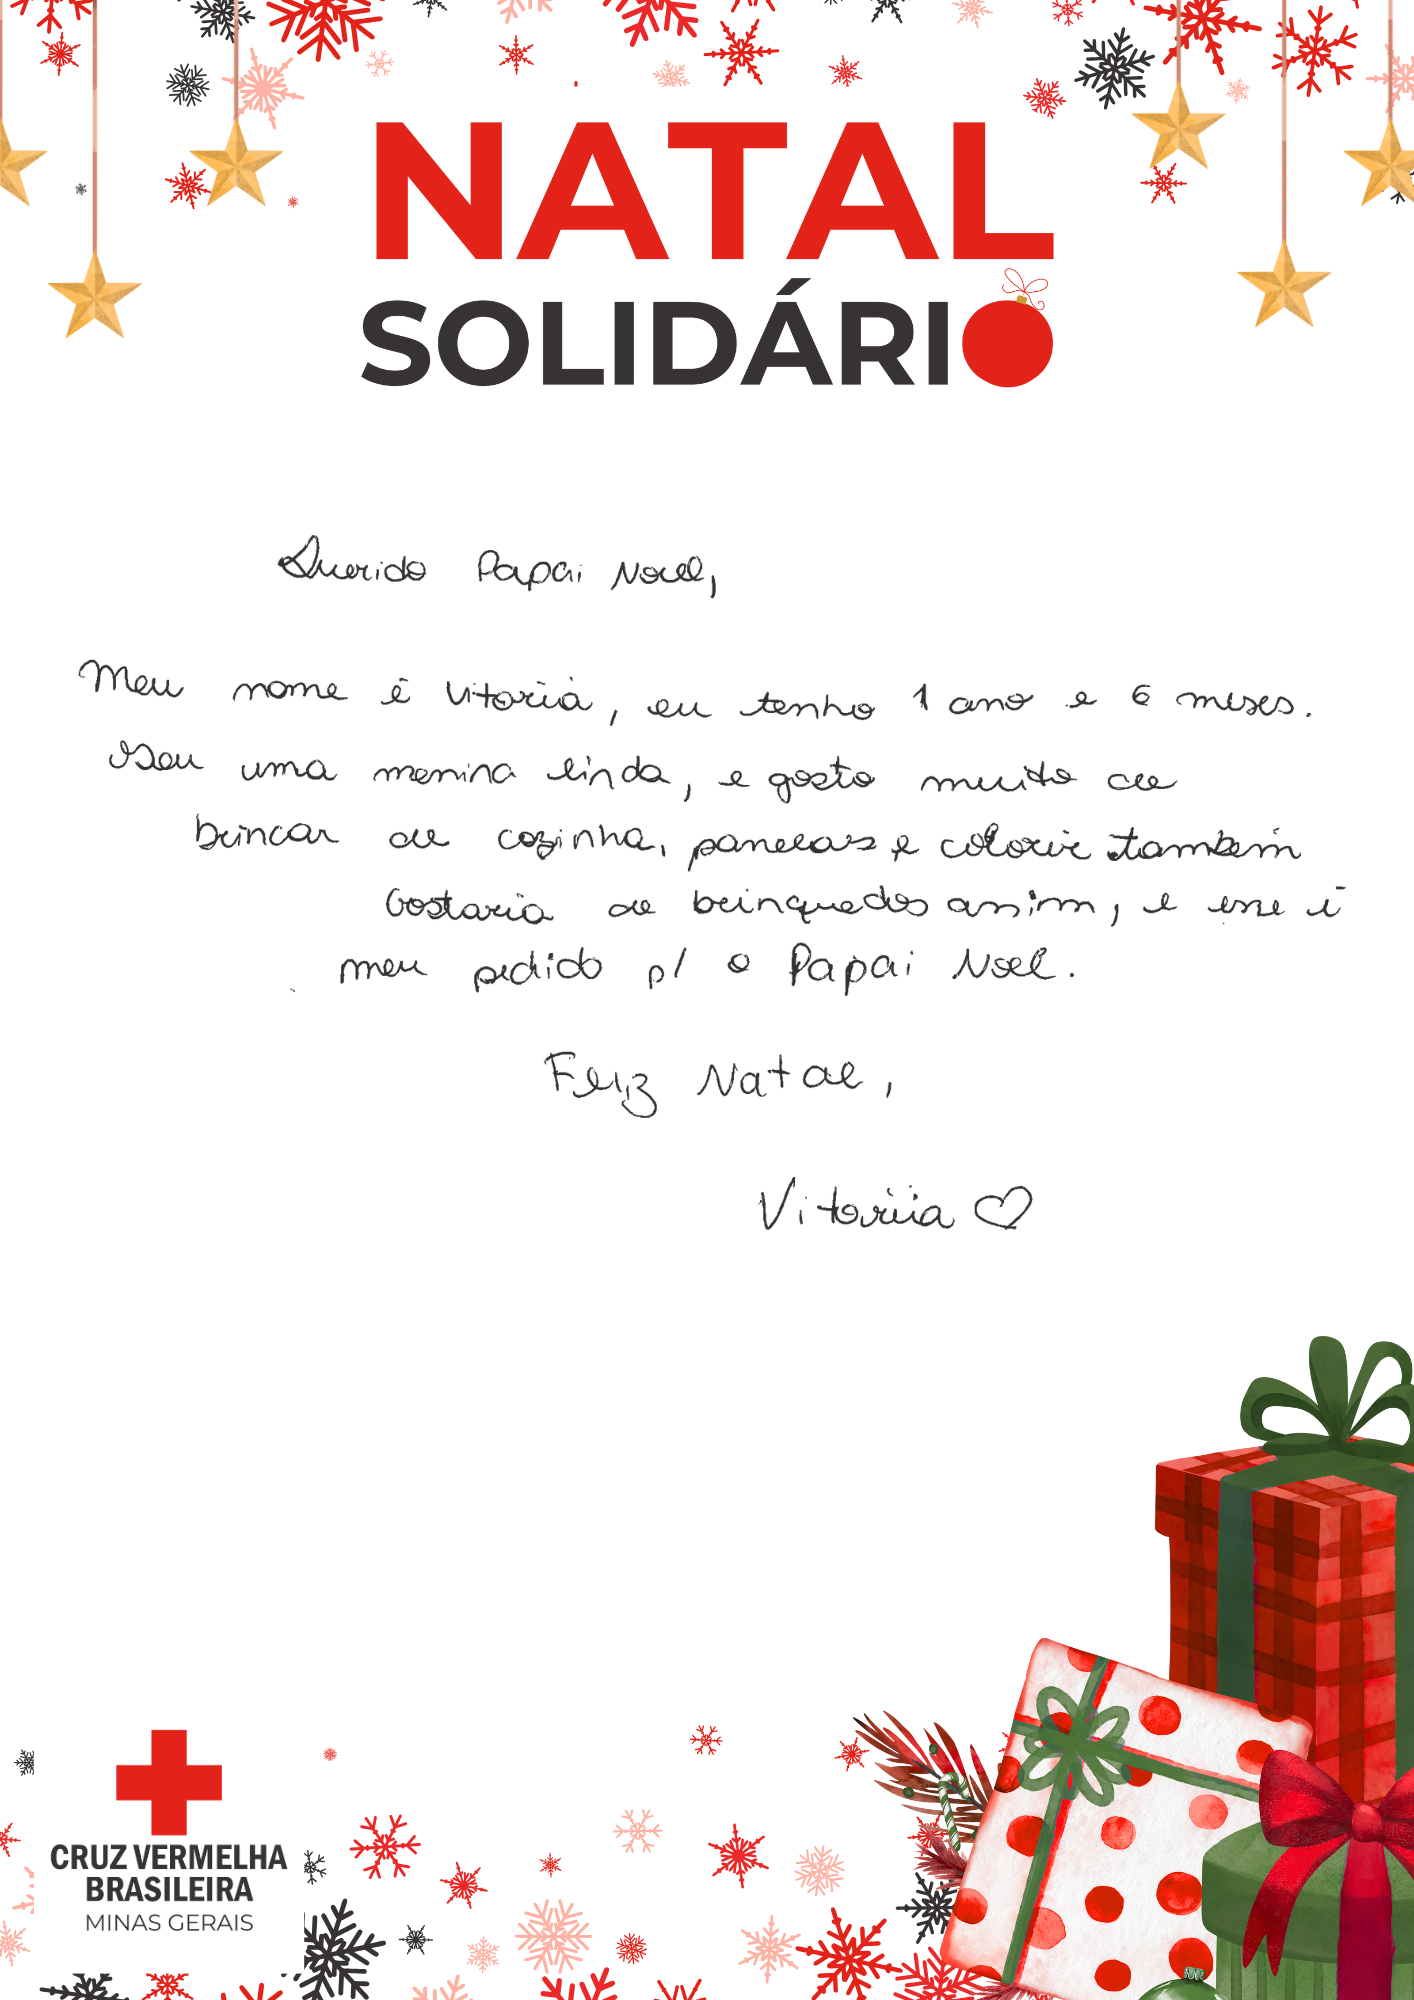 NATAL
SOLIDÁRIO
Querido Papai Noel,
Meu nome é Vitoria, eu tenho 1 ano e 6 meses.
Sou uma menina linda, e gosto muito de
brincar de cozinha, panelas e colorir também
Gostaria de brinquedos assim, e esse é
meu pedido p/ o Papai Noel.
Feliz Natal,
Vitoria ♡
CRUZ VERMELHA
BRASILEIRA
MINAS GERAIS